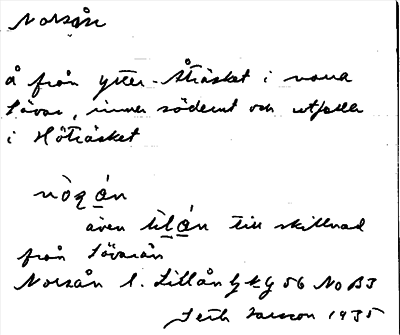 Norsån
å från Ytter-Åträsket i norra
Sävar, rinner söderut och utfaller
i Håträsket
nòqǻn
även lìlǻn till skillnad
från Sävarån
Norsån l. Lillån GKG 56 No BJ
Seth Larsson 1935